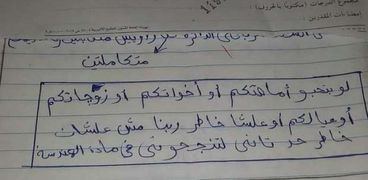 مجموع الدرجات مكتوبا بالحروف
إمضاءات المقدرين
متكاملتين
لو بتحبو أمهاتكم أو أخواتكم أو زوجاتكم
أو عيالكم أو علشان خاطر ربنا مش علشان
خاطر حد تانى لتنجحونى فى مادة الهندسة